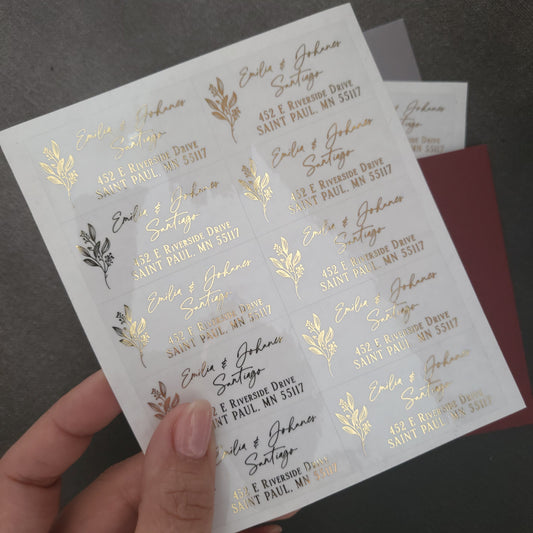 Emilia & Johanes
Santiago
452 E Riverside Drive
Saint Paul, MN 55117
Emilia & Johanes
Santiago
452 E Riverside Drive
Saint Paul, MN 55117
Emilia & Johanes
Santiago
452 E Riverside Drive
Saint Paul, MN 55117
Emilia & Johanes
Santiago
452 E Riverside Drive
Saint Paul, MN 55117
Emilia & Johanes
Santiago
452 E Riverside Drive
Saint Paul, MN 55117
Emilia & Johanes
Santiago
452 E Riverside Drive
Saint Paul, MN 55117
Emilia & Johanes
Santiago
452 E Riverside Drive
Saint Paul, MN 55117
Emilia & Johanes
Santiago
452 E Riverside Drive
Saint Paul, MN 55117
Emilia & Johanes
Santiago
452 E Riverside Drive
Saint Paul, MN 55117
Emilia & Johanes
Santiago
452 E Riverside Drive
Saint Paul, MN 55117